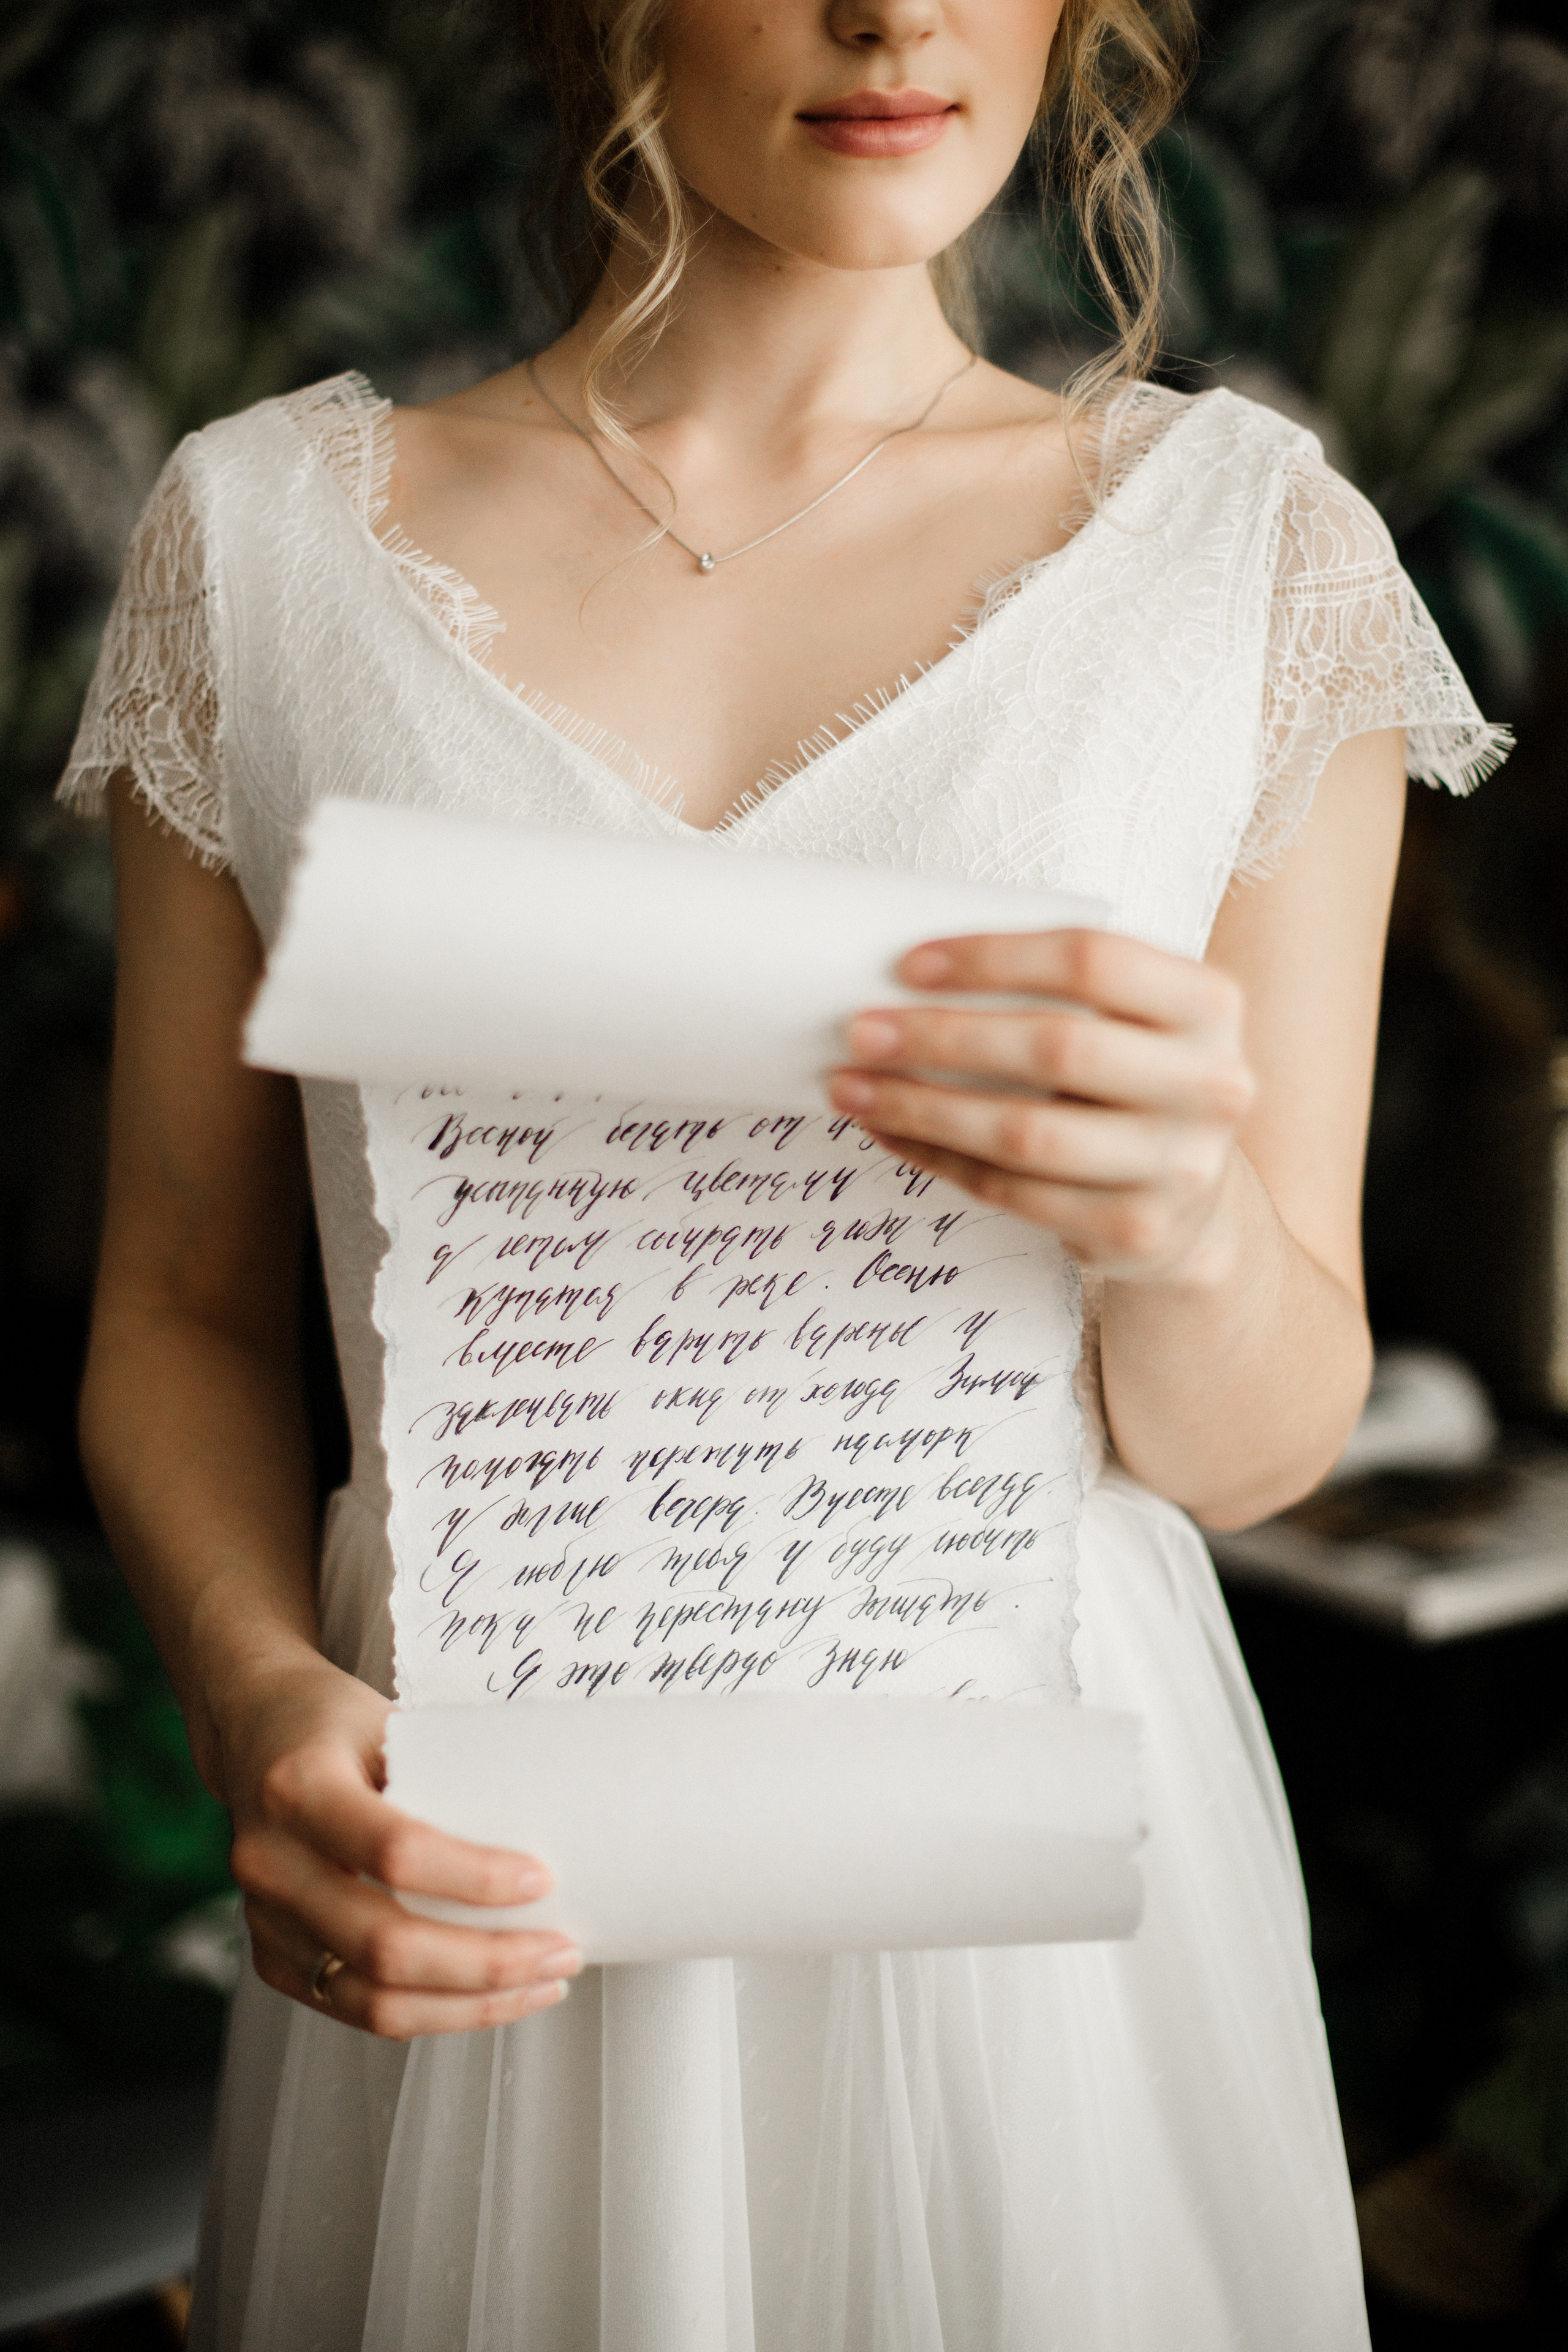 Весной бегать от
усыпанную цветами
а летом собирать ягоды и
купатся в реке. Осенью
вместе варить варенье и
заклеивать окна от холода Зимой
помогать пережить насморк
и долгие вечера. Вместе всегда.
Я люблю тебя и буду любить
пока не перестану дышать.
Я это твердо знаю